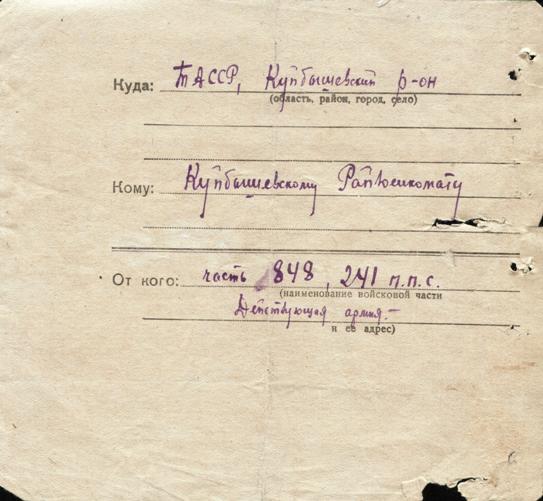 Куда: ТАССР, Куйбышевский р-он
(область, район, город, село)
Кому: Куйбышевскому Райвоенкомату
От кого: часть 848, 241 п.п.с.
(наименование войсковой части
Действующая армия.-
и её адрес)